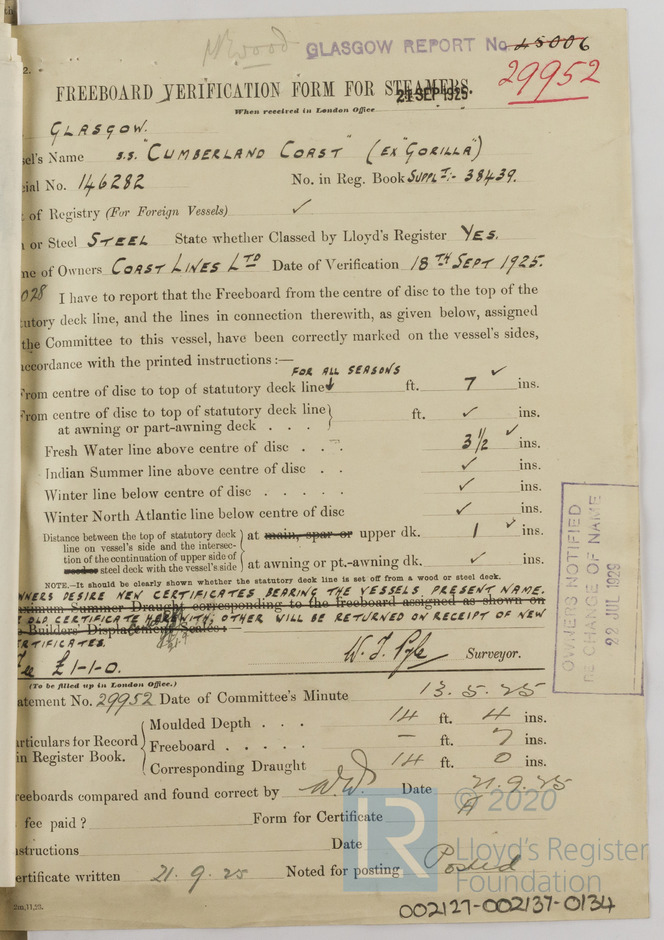 GLASGOW REPORT No 45006
29952
2.
FREEBOARD VERIFICATION FORM FOR STEAMERS.
21 SEP 1925
When received in London Office
GLASGOW.
sel's Name S.S. "CUMBERLAND COAST" (EX "GORILLA")
ial No. 146282 No. in Reg. Book SUPPLT:- 38439.
of Registry (For Foreign Vessels) ✓
or Steel STEEL State whether Classed by Lloyd's Register YES.
ne of Owners COAST LINES LTD Date of Verification 18TH SEPT 1925.
028 I have to report that the Freeboard from the centre of disc to the top of the
tutory deck line, and the lines in connection therewith, as given below, assigned
the Committee to this vessel, have been correctly marked on the vessel's sides,
accordance with the printed instructions:—
FOR ALL SEASONS
From centre of disc to top of statutory deck line ft. 7 ✓ ins.
From centre of disc to top of statutory deck line } ft. ✓ ins.
at awning or part-awning deck . . .
Fresh Water line above centre of disc . . . 3 1/2 ✓ ins.
Indian Summer line above centre of disc . . ✓ ins.
Winter line below centre of disc . . . . . ✓ ins.
Winter North Atlantic line below centre of disc ✓ ins.
Distance between the top of statutory deck
line on vessel's side and the intersec-
tion of the continuation of upper side of
wooden steel deck with the vessel's side
at main, spar or upper dk. 1 ✓ ins.
at awning or pt.-awning dk. ✓ ins.
NOTE.—It should be clearly shown whether the statutory deck line is set off from a wood or steel deck.
WNERS DESIRE NEW CERTIFICATES BEARING THE VESSELS PRESENT NAME.
aximum Summer Draught corresponding to the freeboard assigned as shown on
OLD CERTIFICATE HEREWITH; OTHER WILL BE RETURNED ON RECEIPT OF NEW
Builders' Displacement Scales:—
RTIFICATES.
£1-1-0.
W. J. Pyle Surveyor.
(To be filled up in London Office.)
atement No. 29952 Date of Committee's Minute 13.5.25
articulars for Record
in Register Book.
Moulded Depth . . . 14 ft. 4 ins.
Freeboard . . . . . – ft. 7 ins.
Corresponding Draught 14 ft. 0 ins.
reeboards compared and found correct by Date 21.9.25
fee paid? Form for Certificate A
nstructions Date
ertificate written 21.9.25 Noted for posting Posted
2m,11,23.
OWNERS NOTIFIED
RE CHANGE OF NAME
22 JUL 1929
LR
© 2020
Lloyd's Register
Foundation
002127-002137-0134